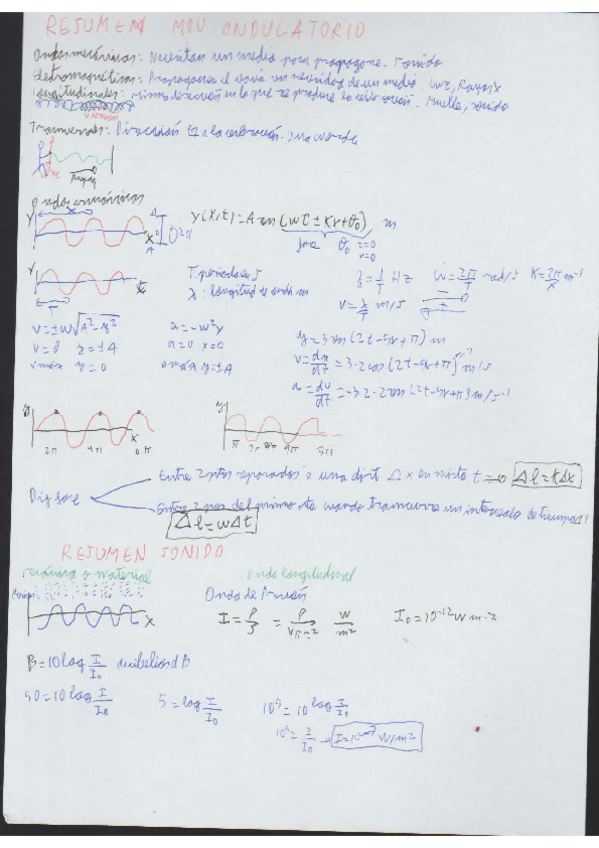 RESUMEN MOV ONDULATORIO
Ondas mecánicas: Necesitan un medio para propagarse. Sonido
Electromagnéticas: Propagarse el vacío sin necesidad de un medio. Luz, Rayos X
Longitudinales: Misma dirección en la que se produce la vibración. Muelle, sonido
Transversales: Dirección a la vibración. Una cuerda
Ondas armónicas
Y X A 2π
y(x,t)=A sen (wt ± Kx+θ0) m
fase θ0 t=0
x=0
Y t T
T periodo en s
λ: longitud de onda m
f=1/T Hz W=2π/T rad/s K=2π/λ m-1
V=λ/T m/s
v=±w√A²-y²
v=0 y=±A
v máx y=0
a=-w²y
a=0 x=0
a máx y=±A
y=3 sen (2t-5x+π) m
v=dy/dt=3·2 cos(2t-5x+π) m/s
a=dv/dt=-3·2·2 sen(2t-5x+π)
y X
2π 4π 6π
Dif fase
Entre 2 ptos separados a una dist Δx en mismo t → Δφ=KΔx
Entre 2 del mismo pto cuando transcurre un intervalo de tiempo Δt
Δφ=wΔt
RESUMEN SONIDO
mecánica o material Onda longitudinal
Presión X
Onda de Presión
I=P/S=P/4πr² W/m² I0=10-12 W m-2
B=10 log I/I0 decibelios dB
50=10 log I/I0 5=log I/I0 10⁵=10 log I/I0
10⁵=I/I0 → I=10-7 W/m2